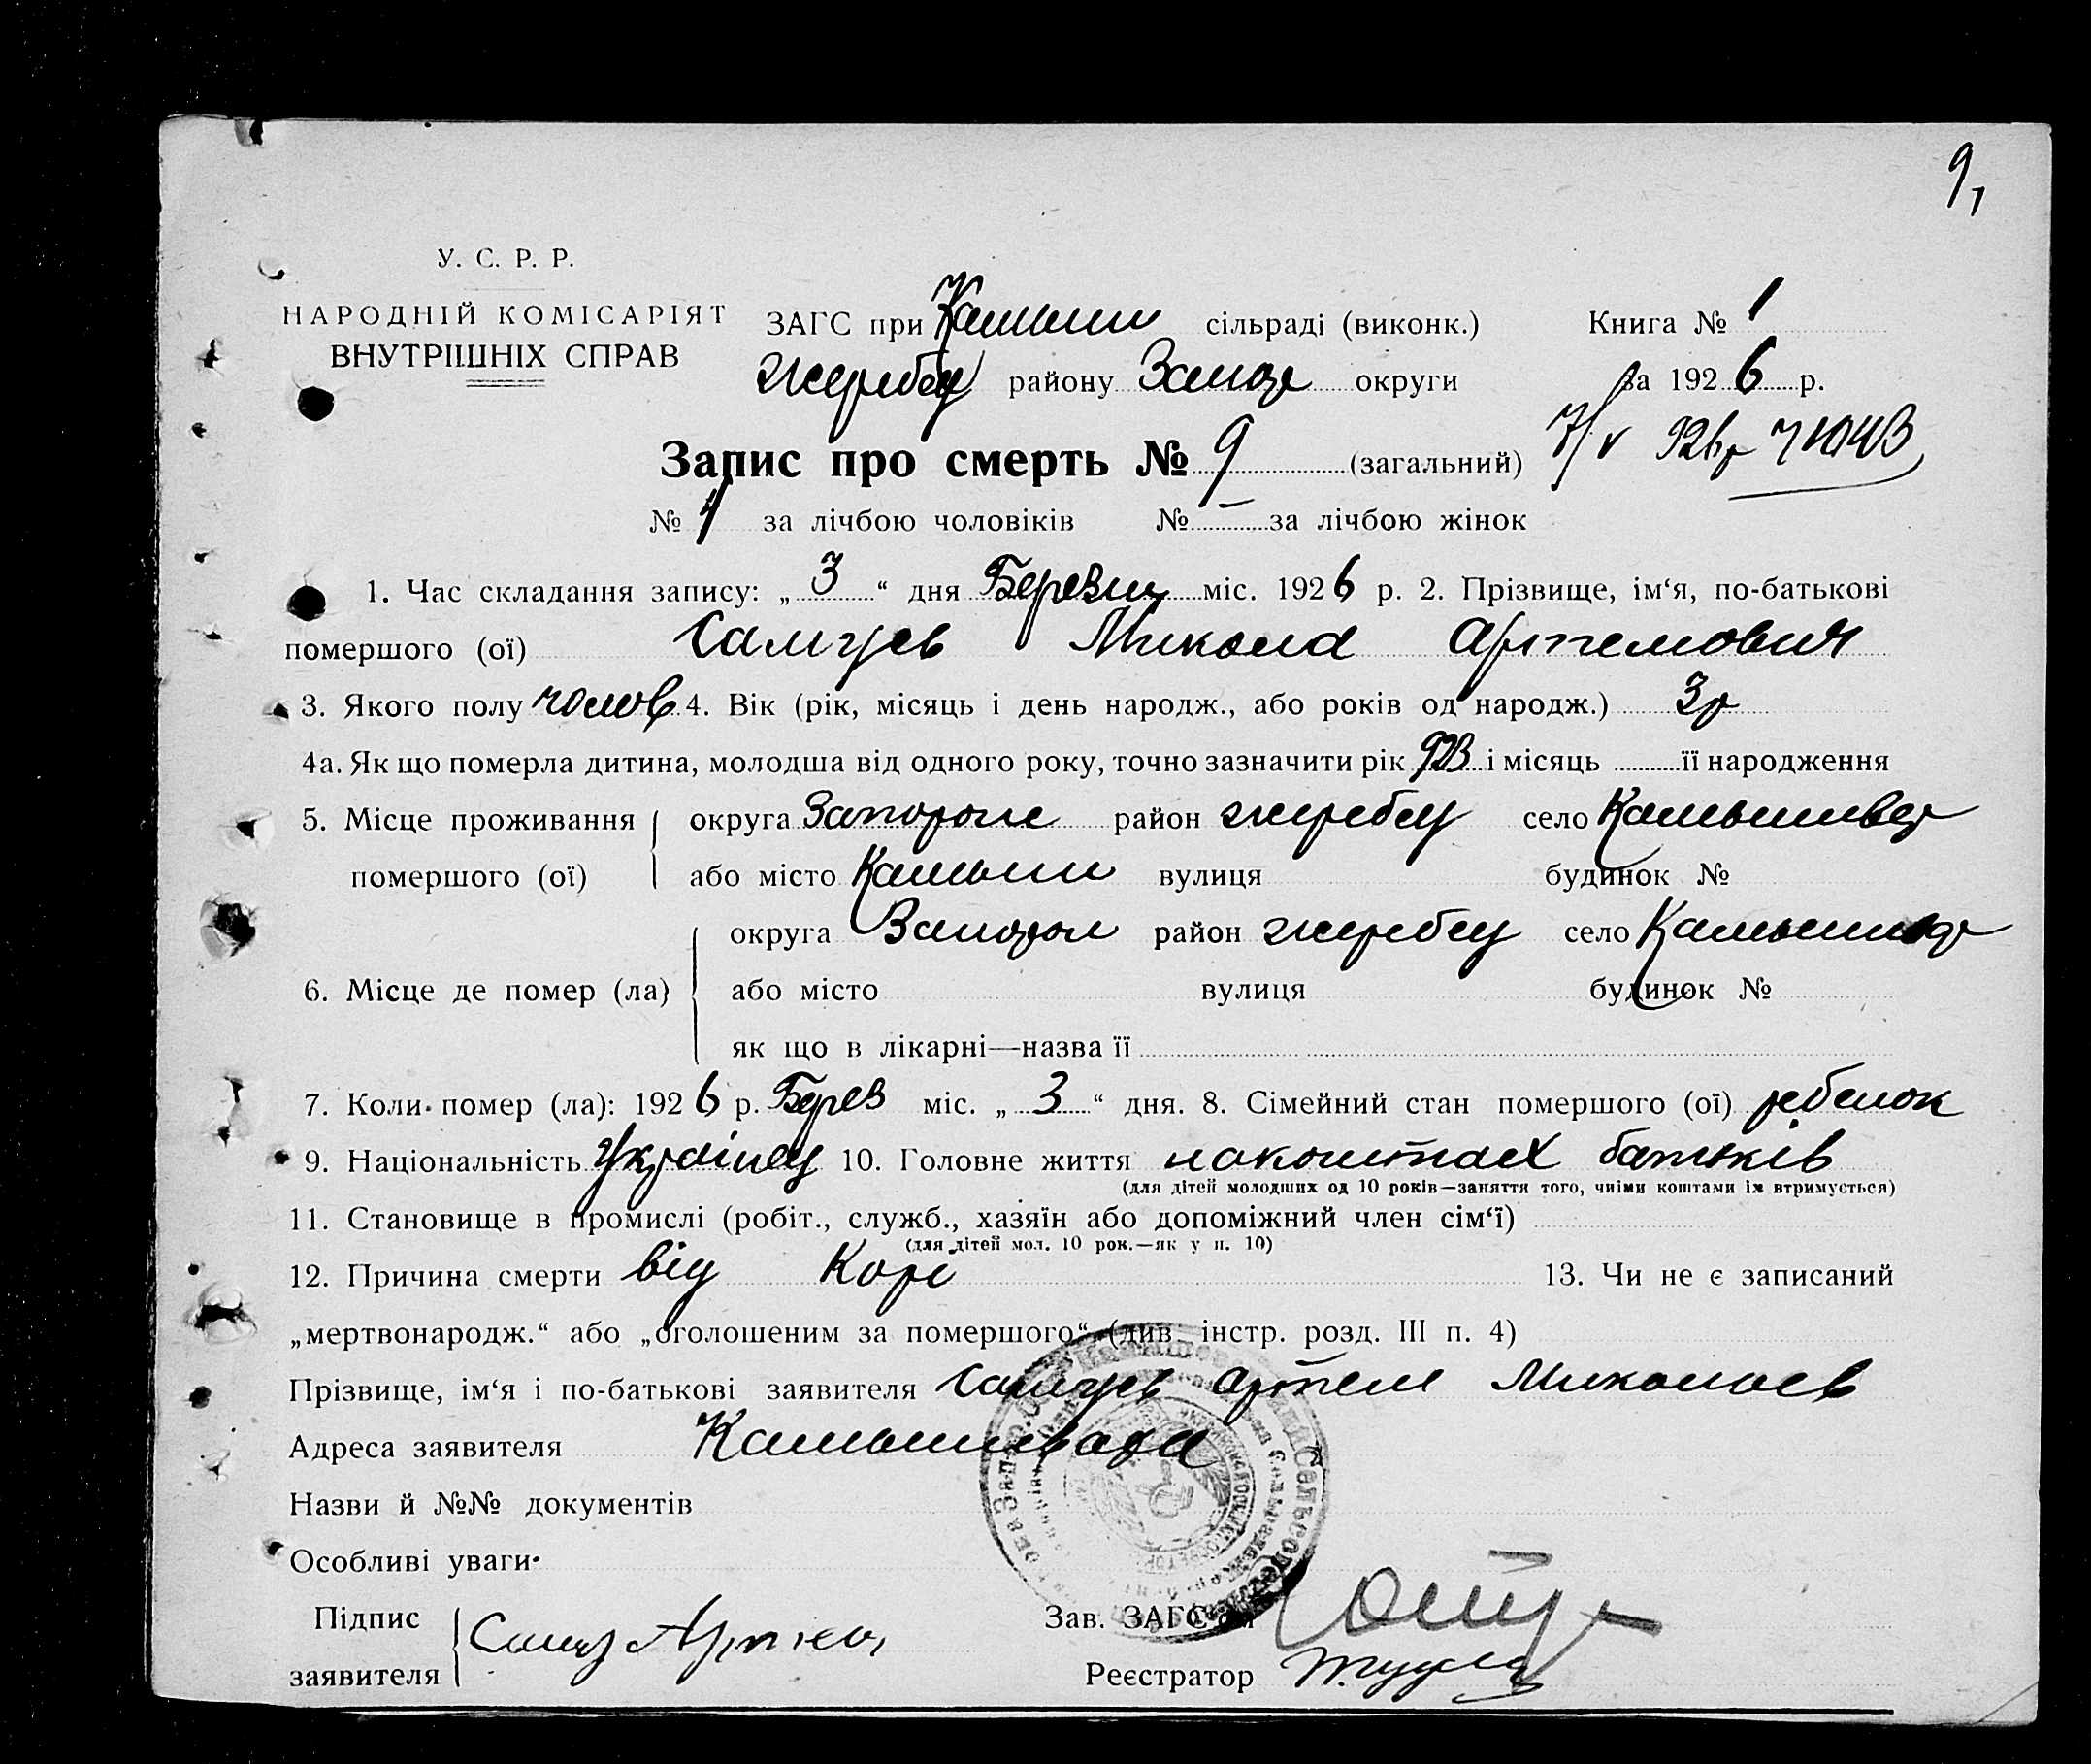 9,
У. С. Р. Р.
НАРОДНІЙ КОМІСАРІЯТ
ВНУТРІШНІХ СПРАВ
ЗАГС при Камыши сільраді (виконк.) Книга № 1
жеребец району Запор округи за 1926 р.
Запис про смерть № 9 (загальний) 7/V 926р
№ 4 за лічбою чоловіків № — за лічбою жінок
1. Час складання запису: „3“ дня Березня міс. 1926 р. 2. Прізвище, ім‘я, по-батькові
помершого (ої) Микола Артемович
3. Якого полу чолов 4. Вік (рік, місяць і день народж., або років од народж.) 3р
4а. Як що померла дитина, молодша від одного року, точно зазначити рік 923 і місяць її народження
5. Місце проживання округа Запорож район жеребец село Камышевах
помершого (ої) або місто Камыши вулиця будинок №
округа Запорож район жеребец село
6. Місце де помер (ла) або місто вулиця будинок №
як що в лікарні—назва її
7. Коли помер (ла): 1926 р. Берез міс. „3“ дня. 8. Сімейний стан помершого (ої) ребенок
9. Національність Українец 10. Головне життя на коштах батьків
(для дітей молодших од 10 років—заняття того, чиїми коштами їх втримується)
11. Становище в промислі (робіт., служб., хазяїн або допоміжний член сім‘ї)
(для дітей мол. 10 рок.—як у п. 10)
12. Причина смерти від Корі 13. Чи не є записаний
„мертвонародж.“ або „оголошеним за помершого“ (див. інстр. розд. III п. 4)
Прізвище, ім‘я і по-батькові заявителя Артем Миколаев
Адреса заявителя Камышеваха
Назви й №№ документів
Особливі уваги
Підпис Артем Зав. ЗАГС‘ом
заявителя Реєстратор